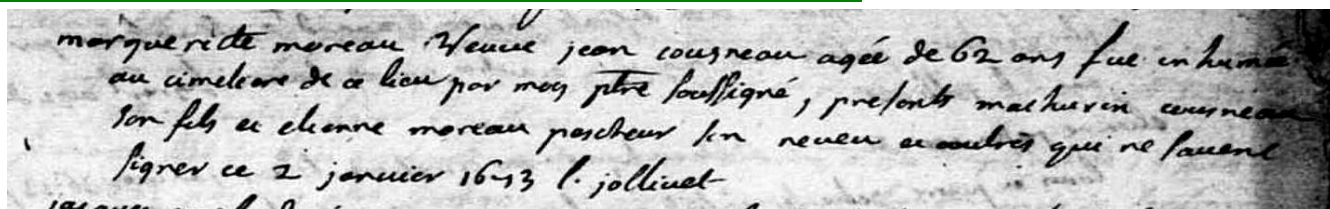 margueritte moreau Veuve jean cousneau agée de 62 ans fut inhumée
au cimetiere de ce lieu par moy ptre soussigné, presents mathurin cousneau
son fils et etienne moreau pescheur son neveu et aultres qui ne savent
signer ce 2 janvier l. jollivet